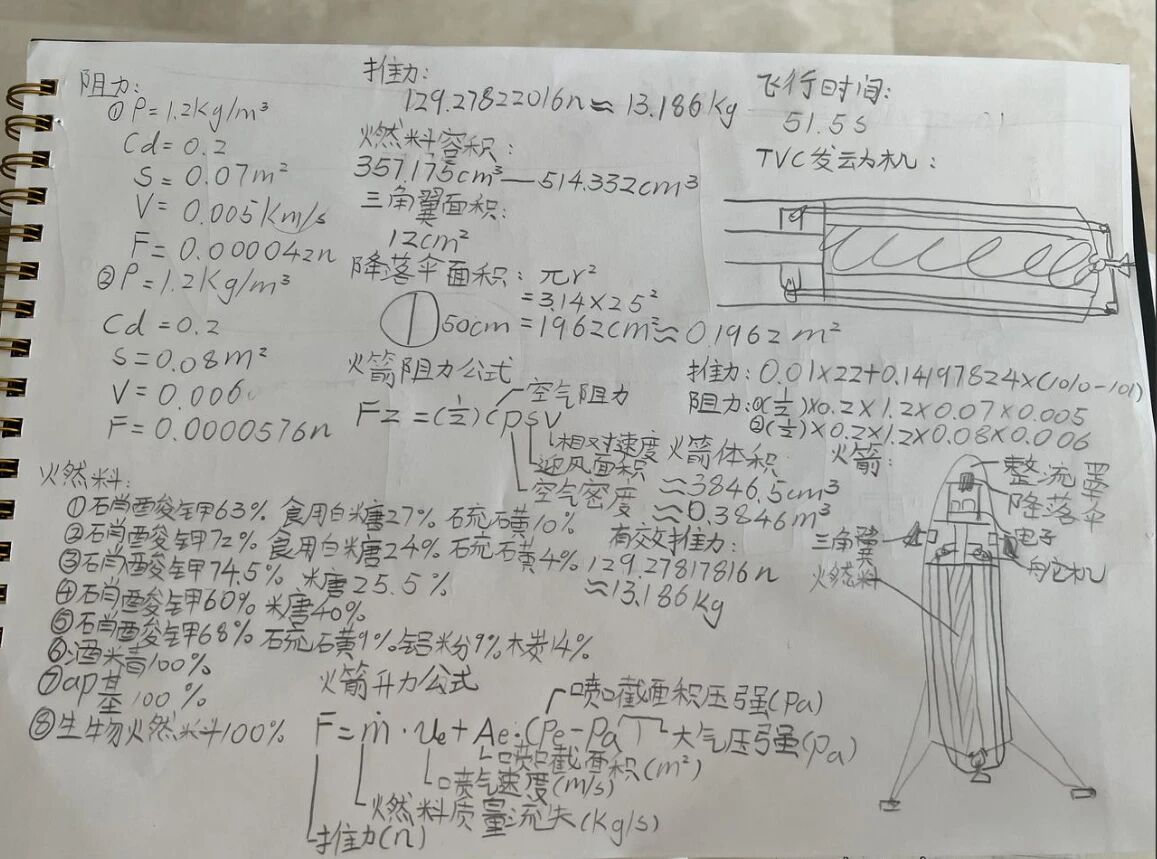 阻力:
①ρ=1.2Kg/m³
Cd=0.2
S=0.07m²
V=0.005Km/s
F=0.000042n
②ρ=1.2Kg/m³
Cd=0.2
S=0.08m²
V=0.006
F=0.0000576n
推力:
129.27822016n≈13.186Kg
燃料容积:
357.175cm³—514.332cm³
三角翼面积:
12cm²
降落伞面积: πr²
=3.14×25²
50cm =1962cm²≈0.1962m²
飞行时间:
51.5s
TVC发动机:
火箭阻力公式
Fz=(1/2)Cρsv
空气阻力
相对速度
迎风面积
空气密度
推力:0.01×22+0.14197824×(1010-101)
阻力:①(1/2)×0.2×1.2×0.07×0.005
②(1/2)×0.2×1.2×0.08×0.006
火箭体积
≈3846.5cm³
≈0.3846m³
有效推力:
129.27817816n
≈13.186Kg
火箭:
整流罩
降落伞
电子
舵机
三角翼
燃料
燃料:
①硝酸钾63% 食用白糖27% 硫磺10%
②硝酸钾72% 食用白糖24% 硫磺4%
③硝酸钾74.5% 糖25.5%
④硝酸钾60% 糖40%
⑤硝酸钾68% 硫磺9% 铝粉9% 木炭14%
⑥酒精100%
⑦ap基100%
⑧生物燃料100%
火箭升力公式
F=ṁ·Ue+Ae·(Pe-Pa)
喷口截面积压强(Pa)
大气压强(pa)
喷口截面积(m²)
喷气速度(m/s)
燃料质量流失(Kg/s)
推力(n)